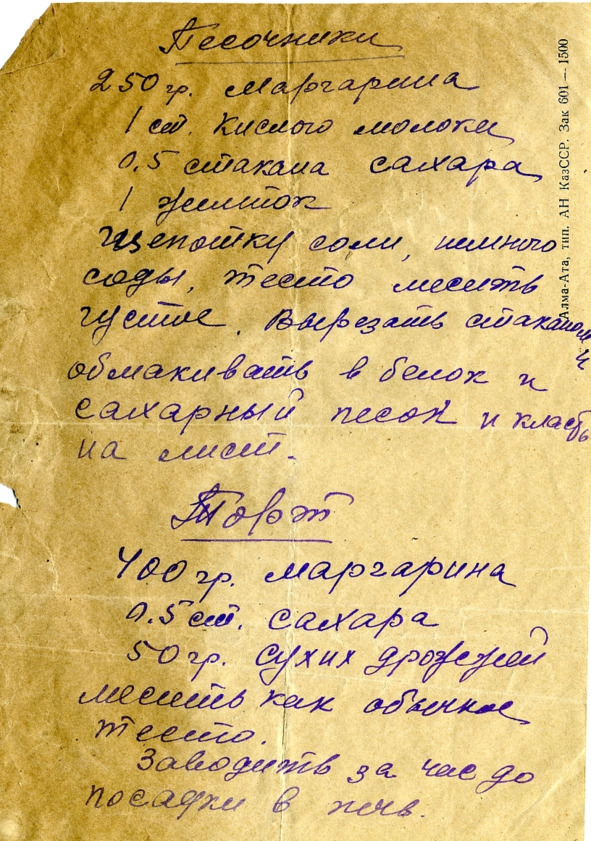 Песочники
250 гр. маргарина
1 ст. кислого молока
0.5 стакана сахара
1 желток
Щепотку соли, немного
соды, тесто месить
густое. Вырезать стаканом
и
обмакивать в белок и
сахарный песок и класть
на лист.
Торт
400 гр. маргарина
0.5 ст. сахара
50 гр. сухих дрожжей
месить как обычное
тесто.
Заводить за час до
посадки в печь.
Алма-Ата, тип. АН КазССР. Зак 601 — 1500